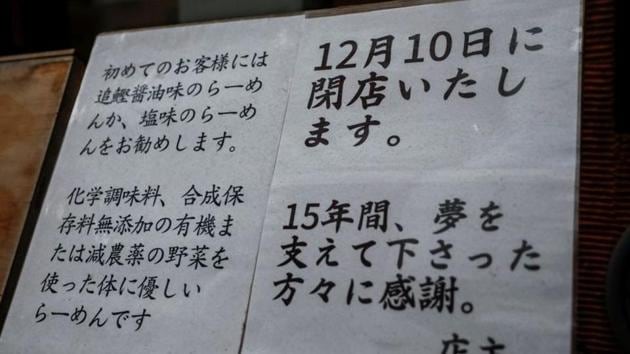 初めてのお客様には
追鰹醤油味のらーめ
んか、塩味のらーめ
んをお勧めします。
化学調味料、合成保
存料無添加の有機ま
たは減農薬の野菜を
使った体に優しい
らーめんです
12月10日に
閉店いたし
ます。
15年間、夢を
支えて下さった
方々に感謝。
店主